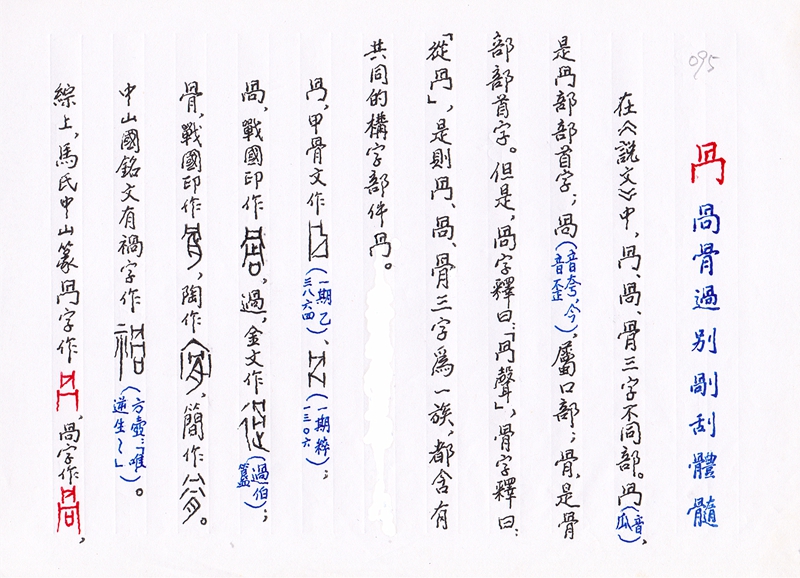 095
冎咼骨過別剮刮體髓
在《說文》中，冎、咼、骨三字不同部。冎（音瓜），
是冎部部首字；咼（音夸，今音歪），屬口部；骨，是骨
部部首字。但是，咼字釋曰：「冎聲」，骨字釋曰：
「從冎」，是則冎、咼、骨三字為一族，都含有
共同的構字部件冎。
冎，甲骨文作（一期乙三八六四）、（一期粹一三〇六）；
咼，戰國印作，過，金文作（過伯簋）；
骨，戰國印作，陶作，簡作。
中山國銘文有禍字作（方壺：「唯逆生～」）。
綜上，馬氏中山篆冎字作，咼字作，